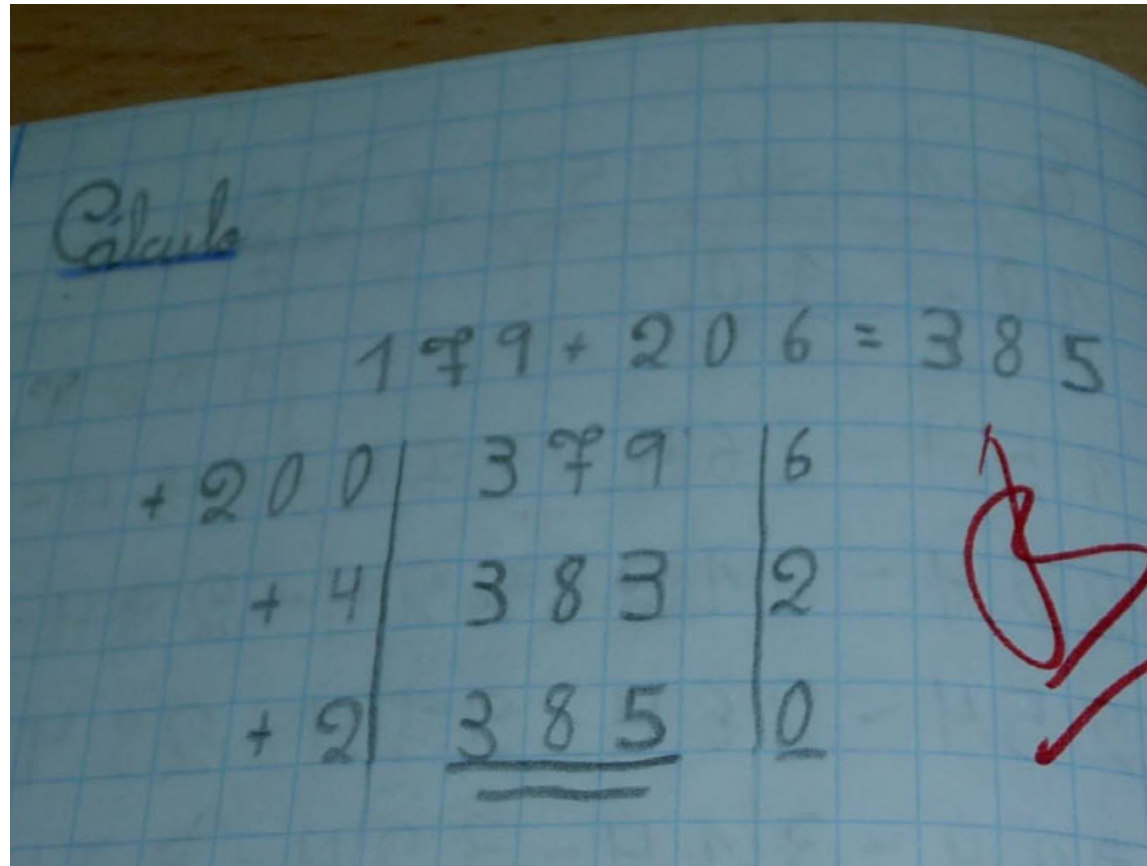 Cálculo
179+206=385
+200 | 379 | 6
+4 | 383 | 2
+2 | 385 | 0